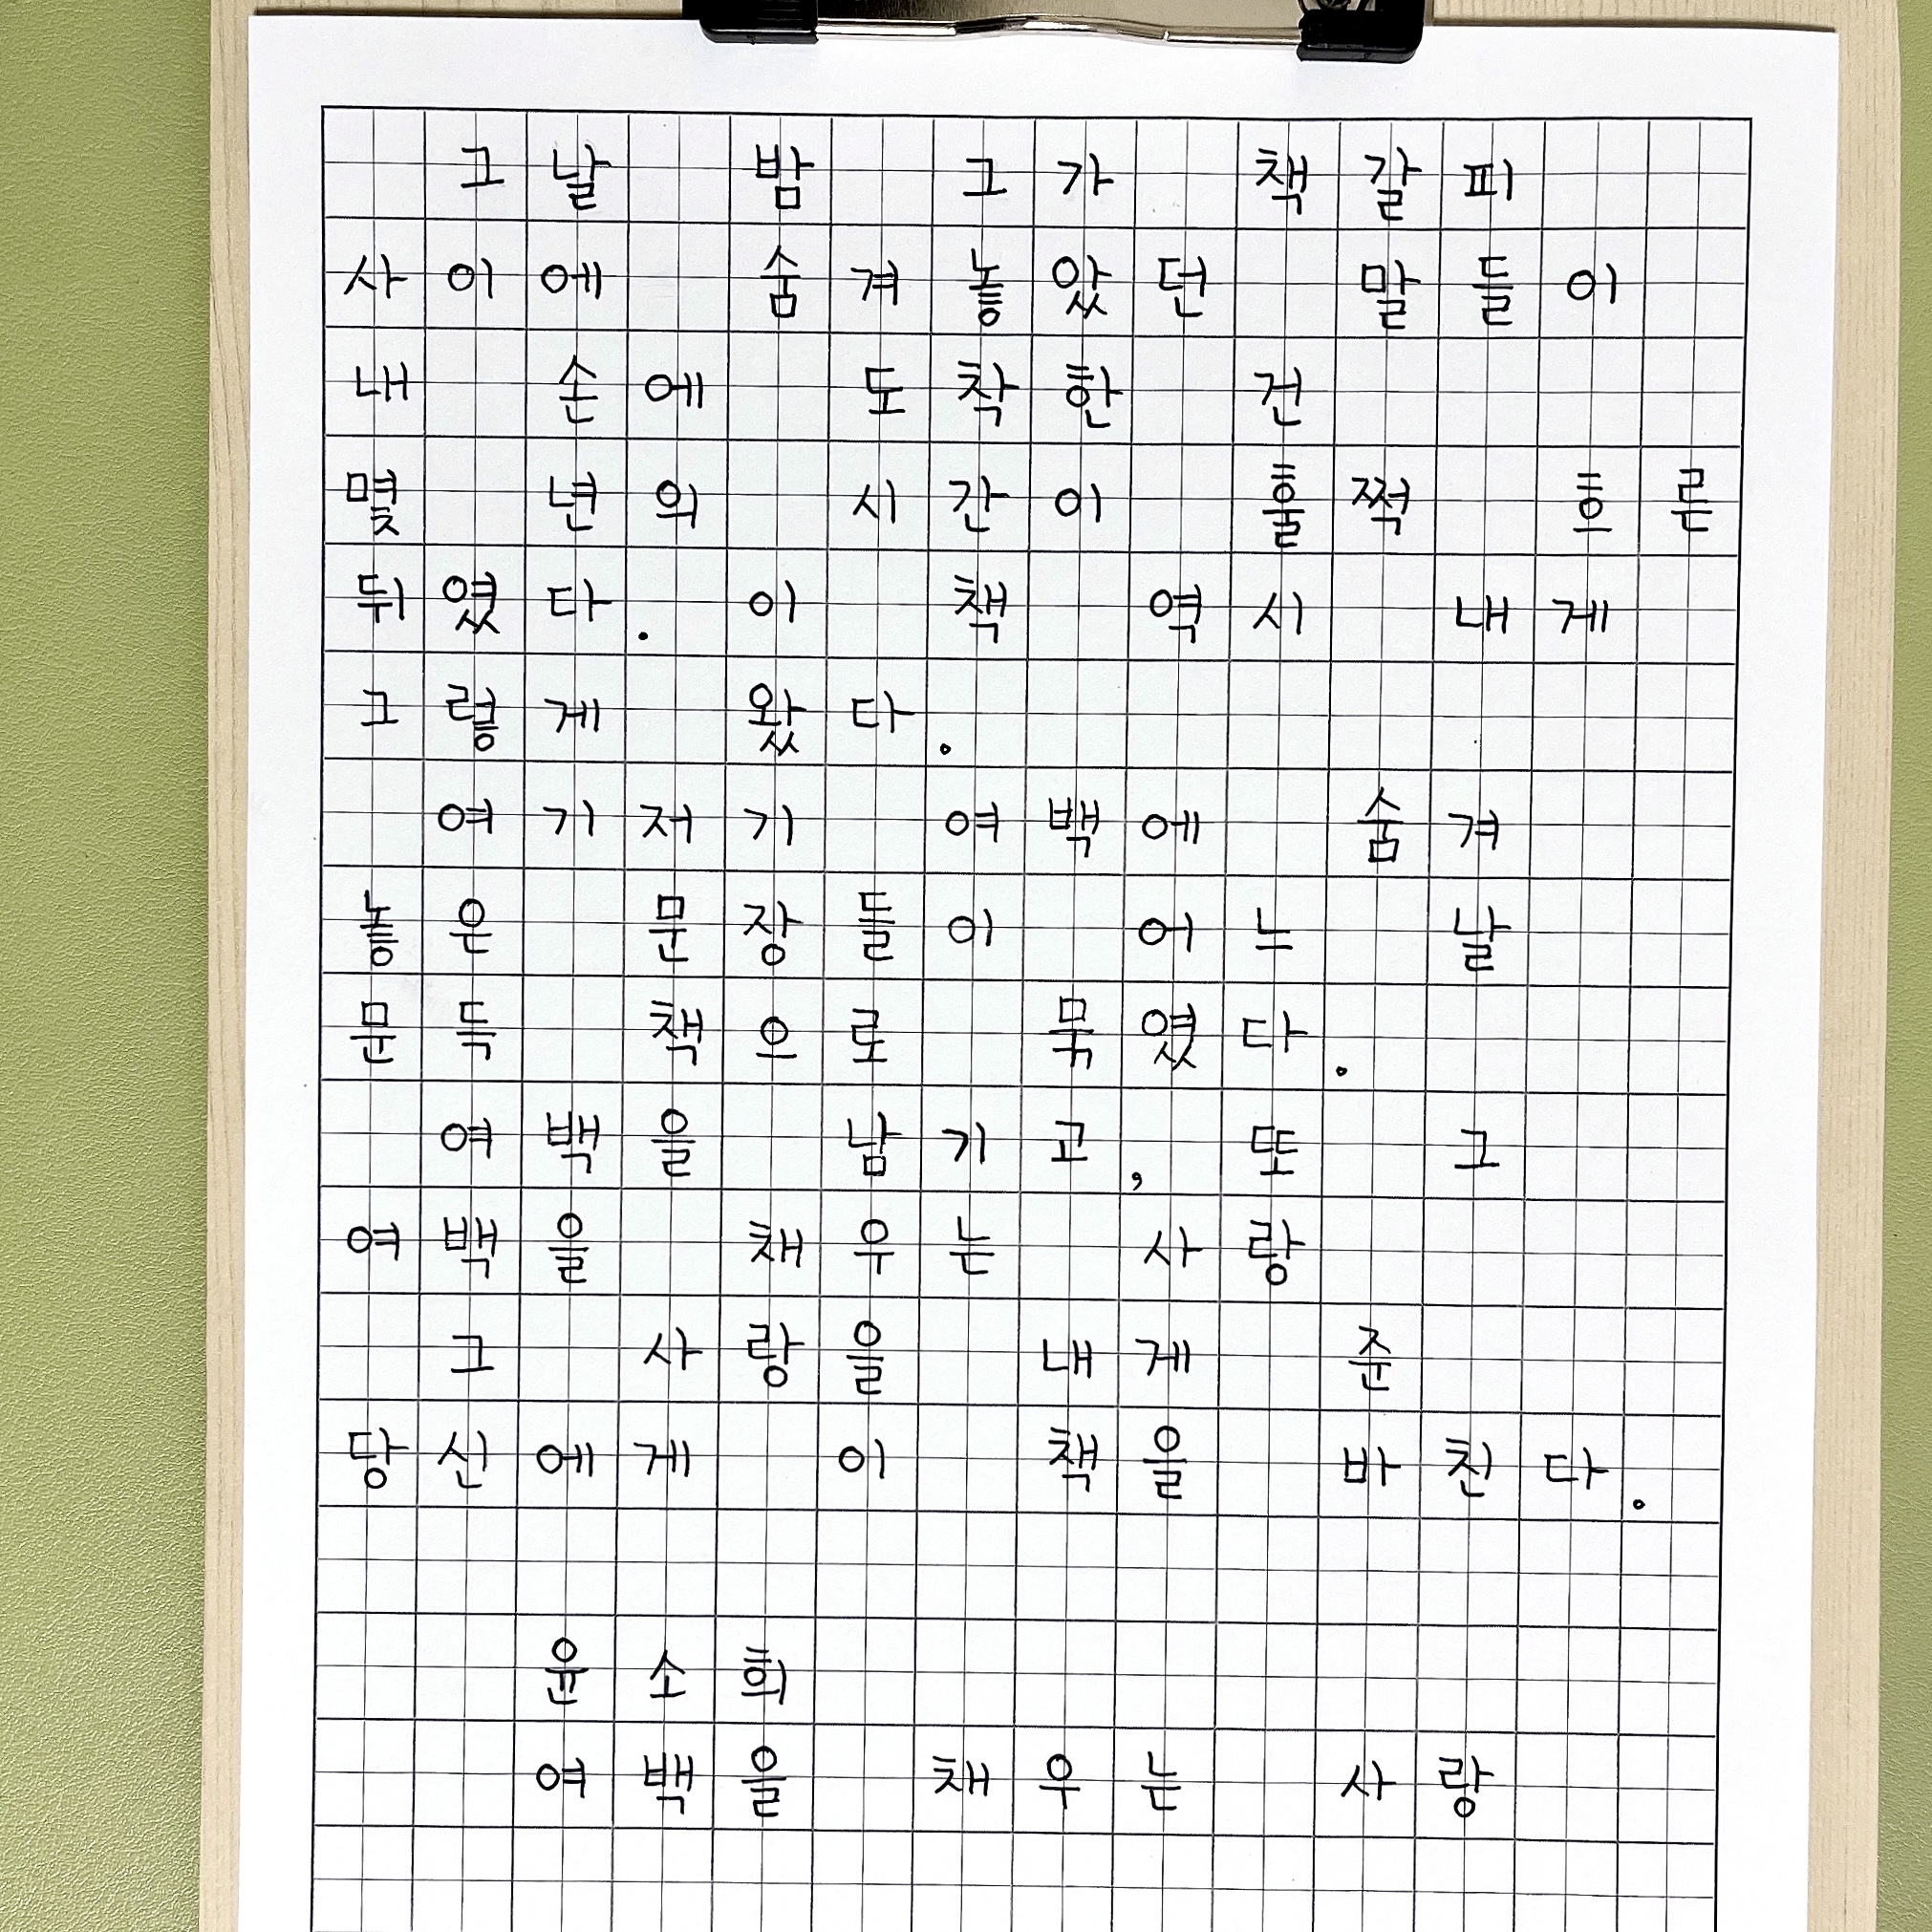 그날 밤 그가 책갈피
사이에 숨겨 놓았던 말들이
내 손에 도착한 건
몇 년의 시간이 훌쩍 흐른
뒤였다. 이 책 역시 내게
그렇게 왔다.
여기저기 여백에 숨겨
놓은 문장들이 어느 날
문득 책으로 묶였다.
여백을 남기고, 또 그
여백을 채우는 사랑
그 사랑을 내게 준
당신에게 이 책을 바친다.
윤소희
여백을 채우는 사랑